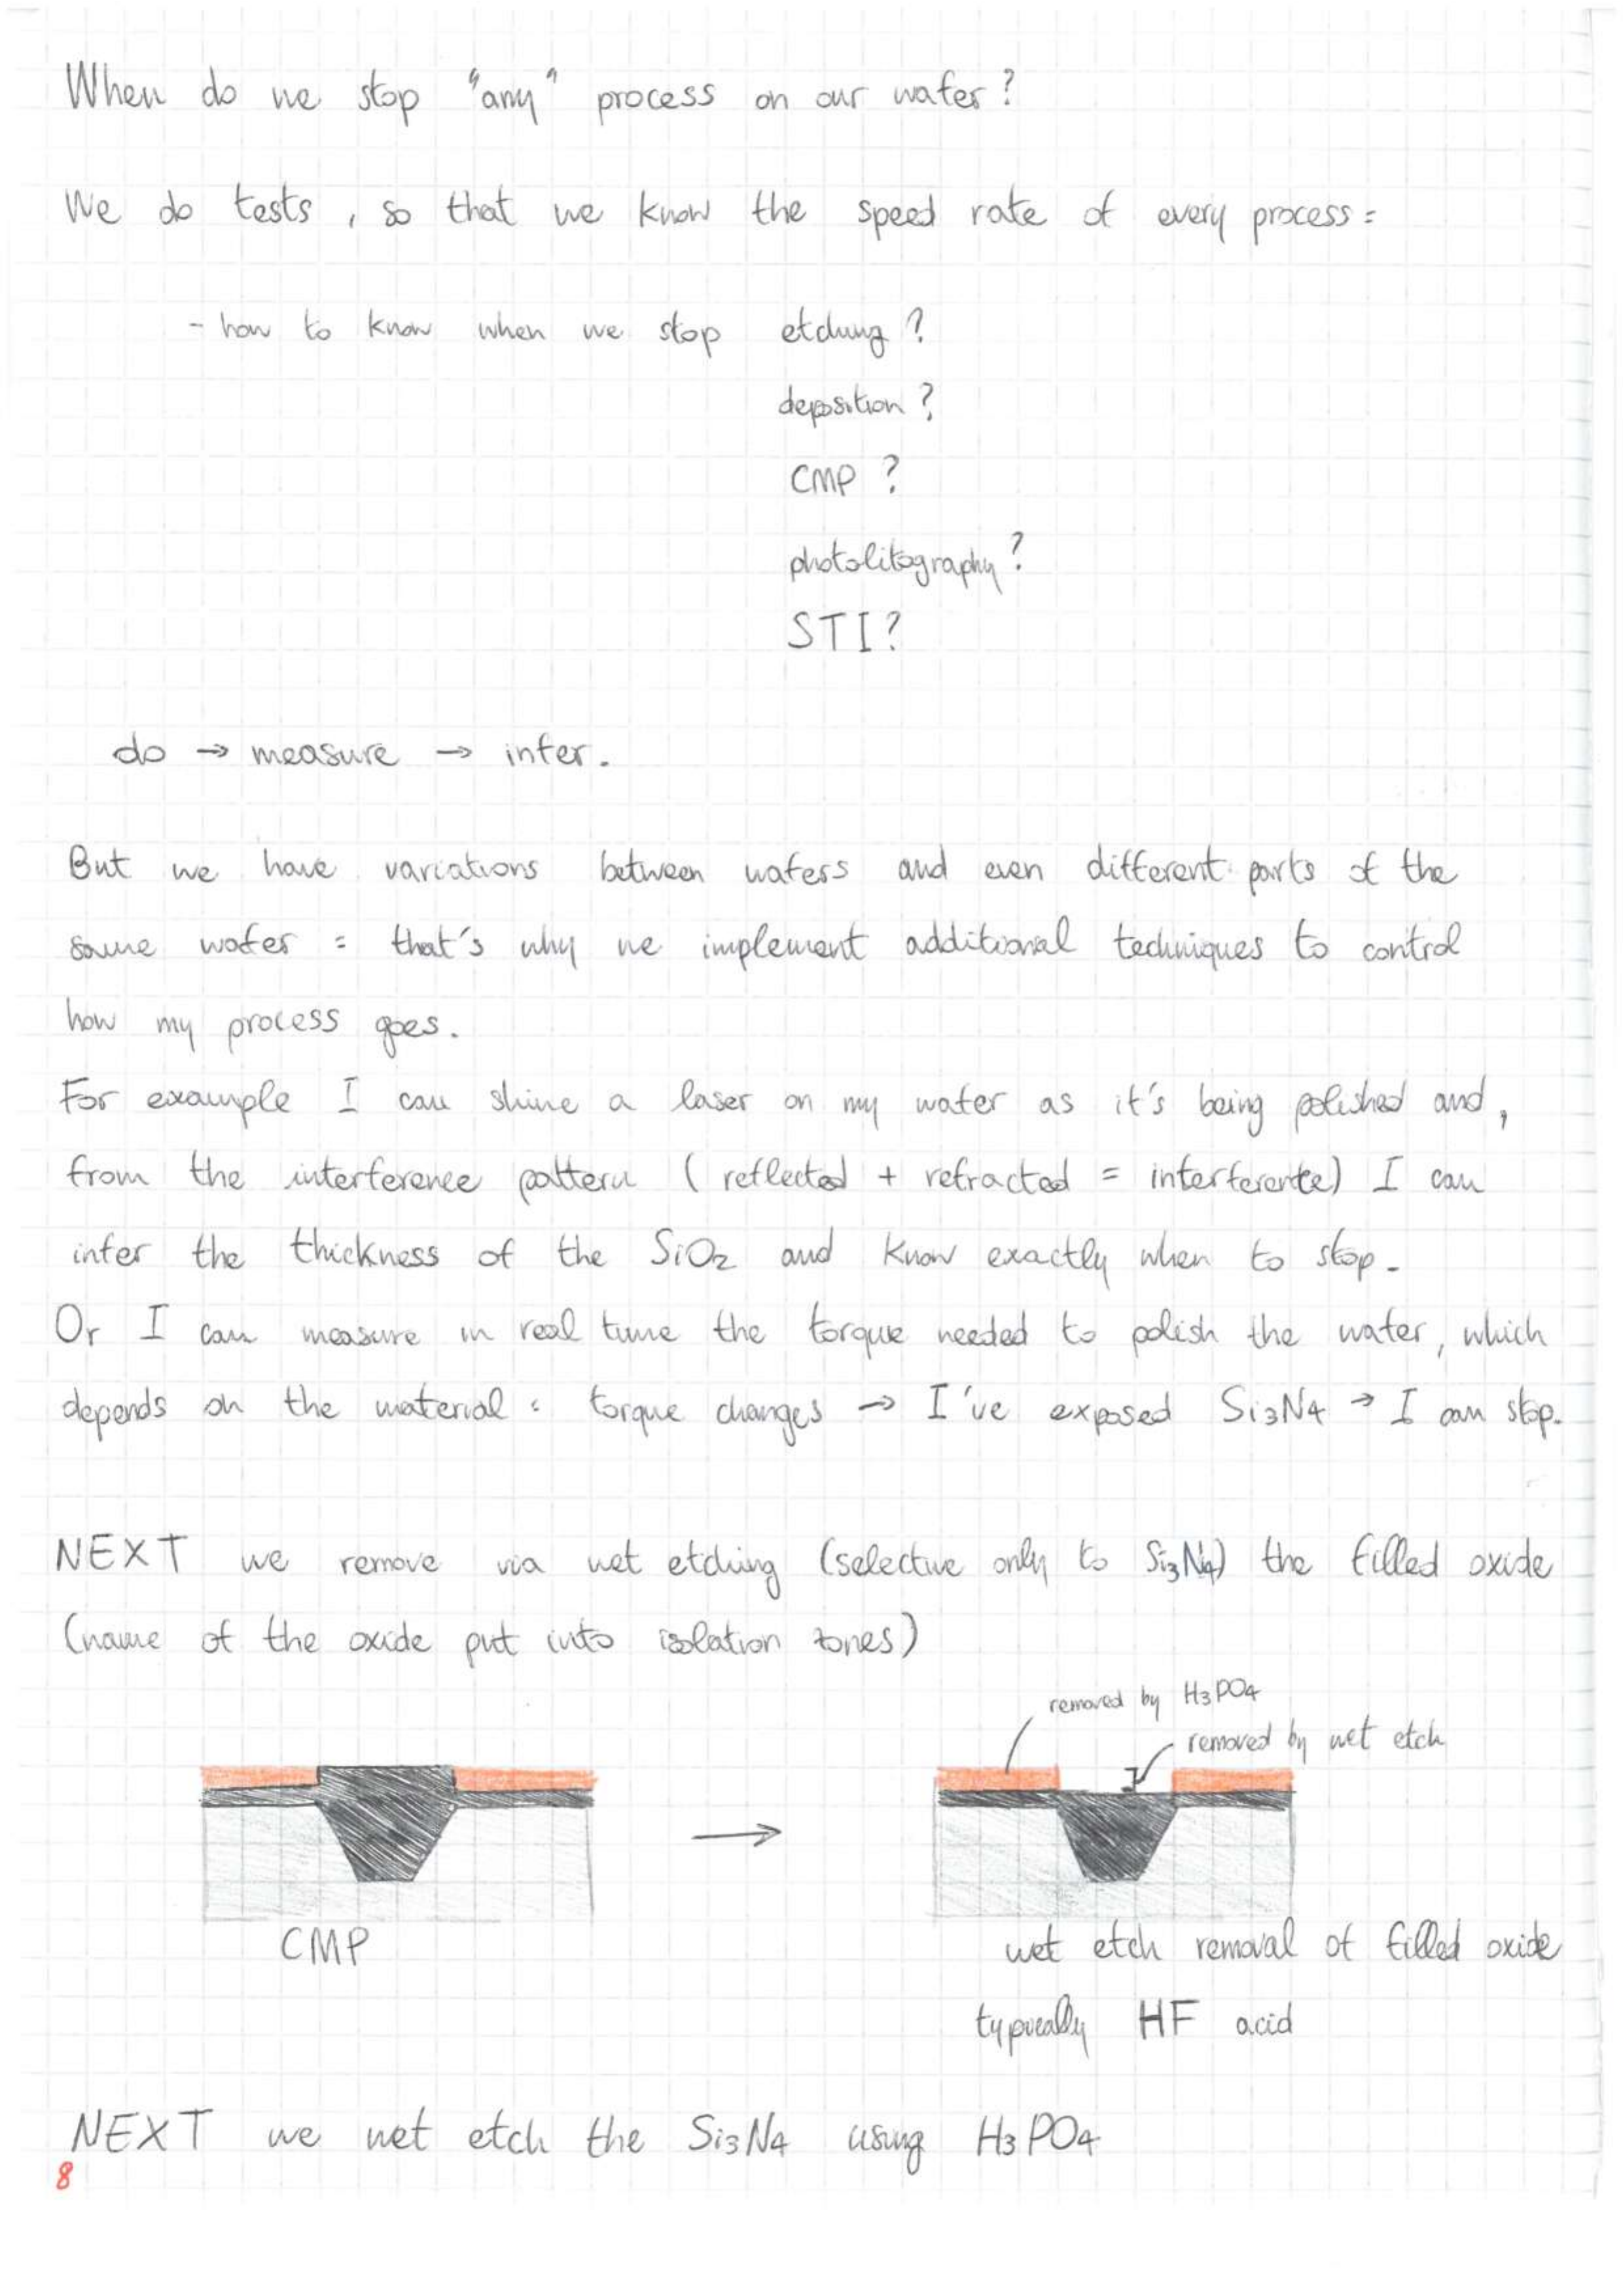 When do we stop "any" process on our wafer?
We do tests, so that we know the speed rate of every process:
- how to know when we stop etching?
deposition?
CMP?
photolitography?
STI?
do → measure → infer.
But we have variations between wafers and even different parts of the
same wafer: that's why we implement additional techniques to control
how my process goes.
For example I can shine a laser on my wafer as it's being polished and,
from the interference pattern (reflected + refracted = interferente) I can
infer the thickness of the SiO2 and know exactly when to stop.
Or I can measure in real time the torque needed to polish the wafer, which
depends on the material: torque changes → I've exposed Si3N4 → I can stop.
NEXT we remove via wet etching (selective only to Si3N4) the filled oxide
(name of the oxide put into isolation zones)
removed by H3PO4
removed by wet etch
CMP
wet etch removal of filled oxide
typically HF acid
NEXT we wet etch the Si3N4 using H3PO4
8